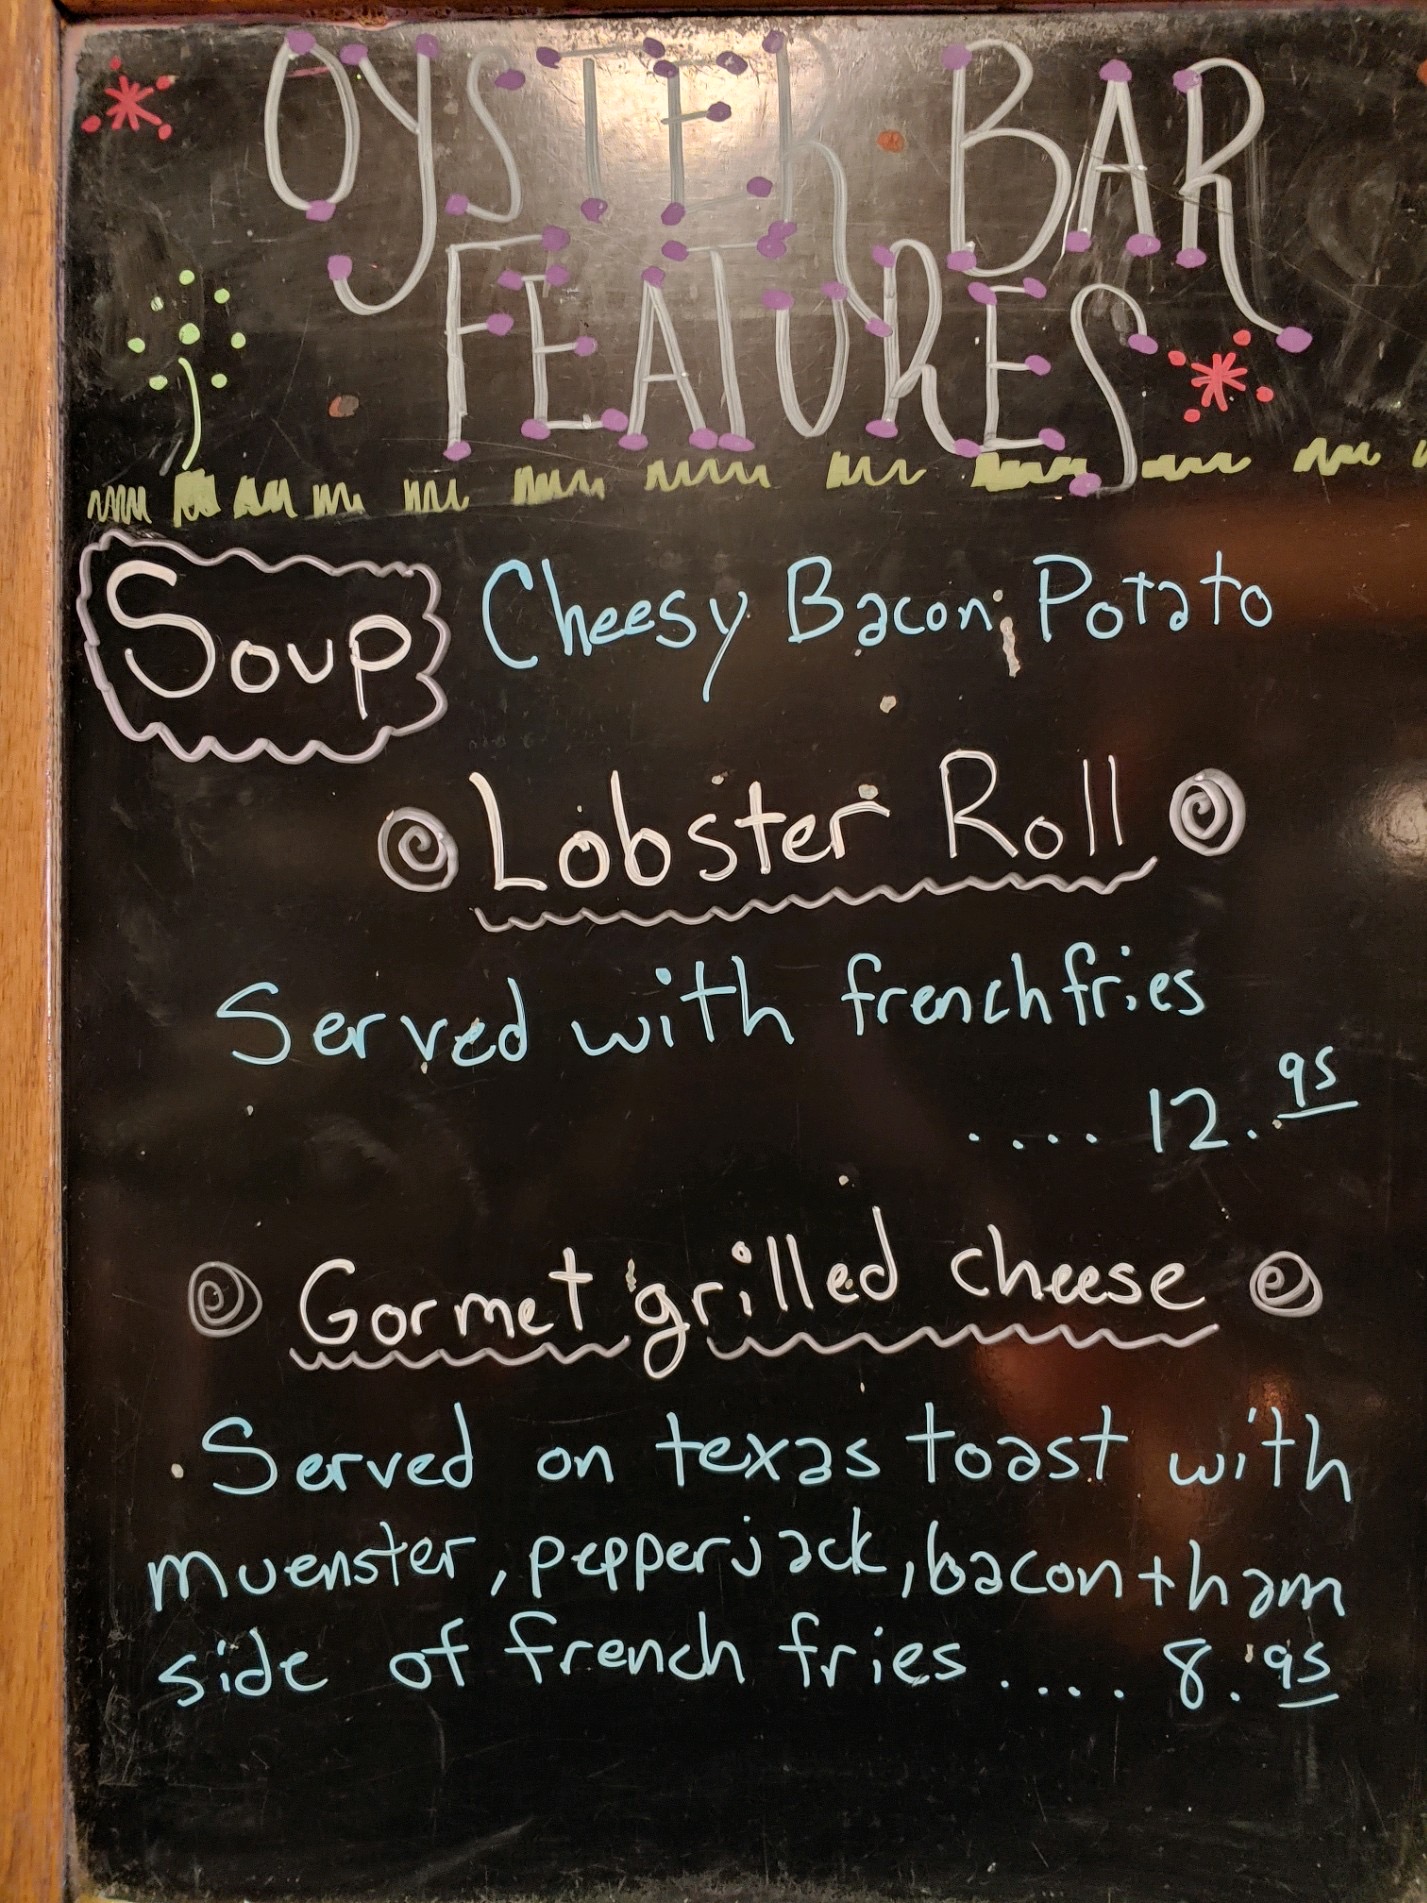 OYSTER BAR
FEATURES
Soup Cheesy Bacon Potato
Lobster Roll
Served with french fries
.... 12.95
Gormet grilled cheese
Served on texas toast with
muenster, pepperjack, bacon + ham
side of french fries .... 8.95